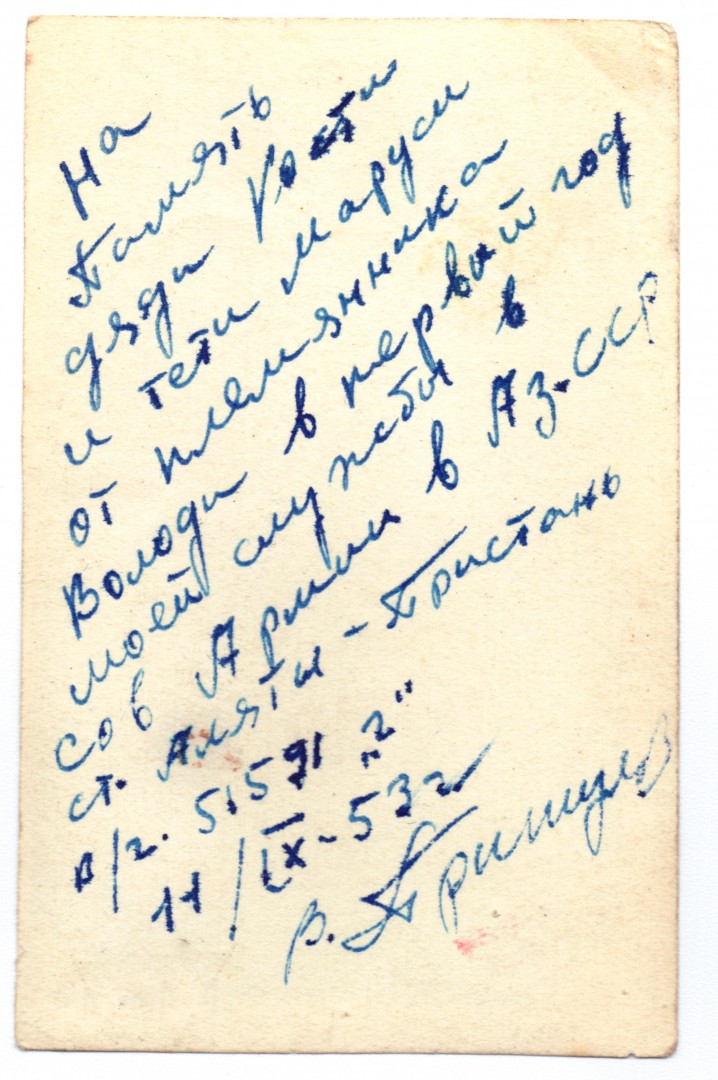 На
Память
дяди Кости
и тети Маруси
от племянника
Володи в первый год
моей службы в
сов Армии в Аз.ССР
ст. Аляты-Пристань
п/г. 51591 „г"
11/IX-53г
В.